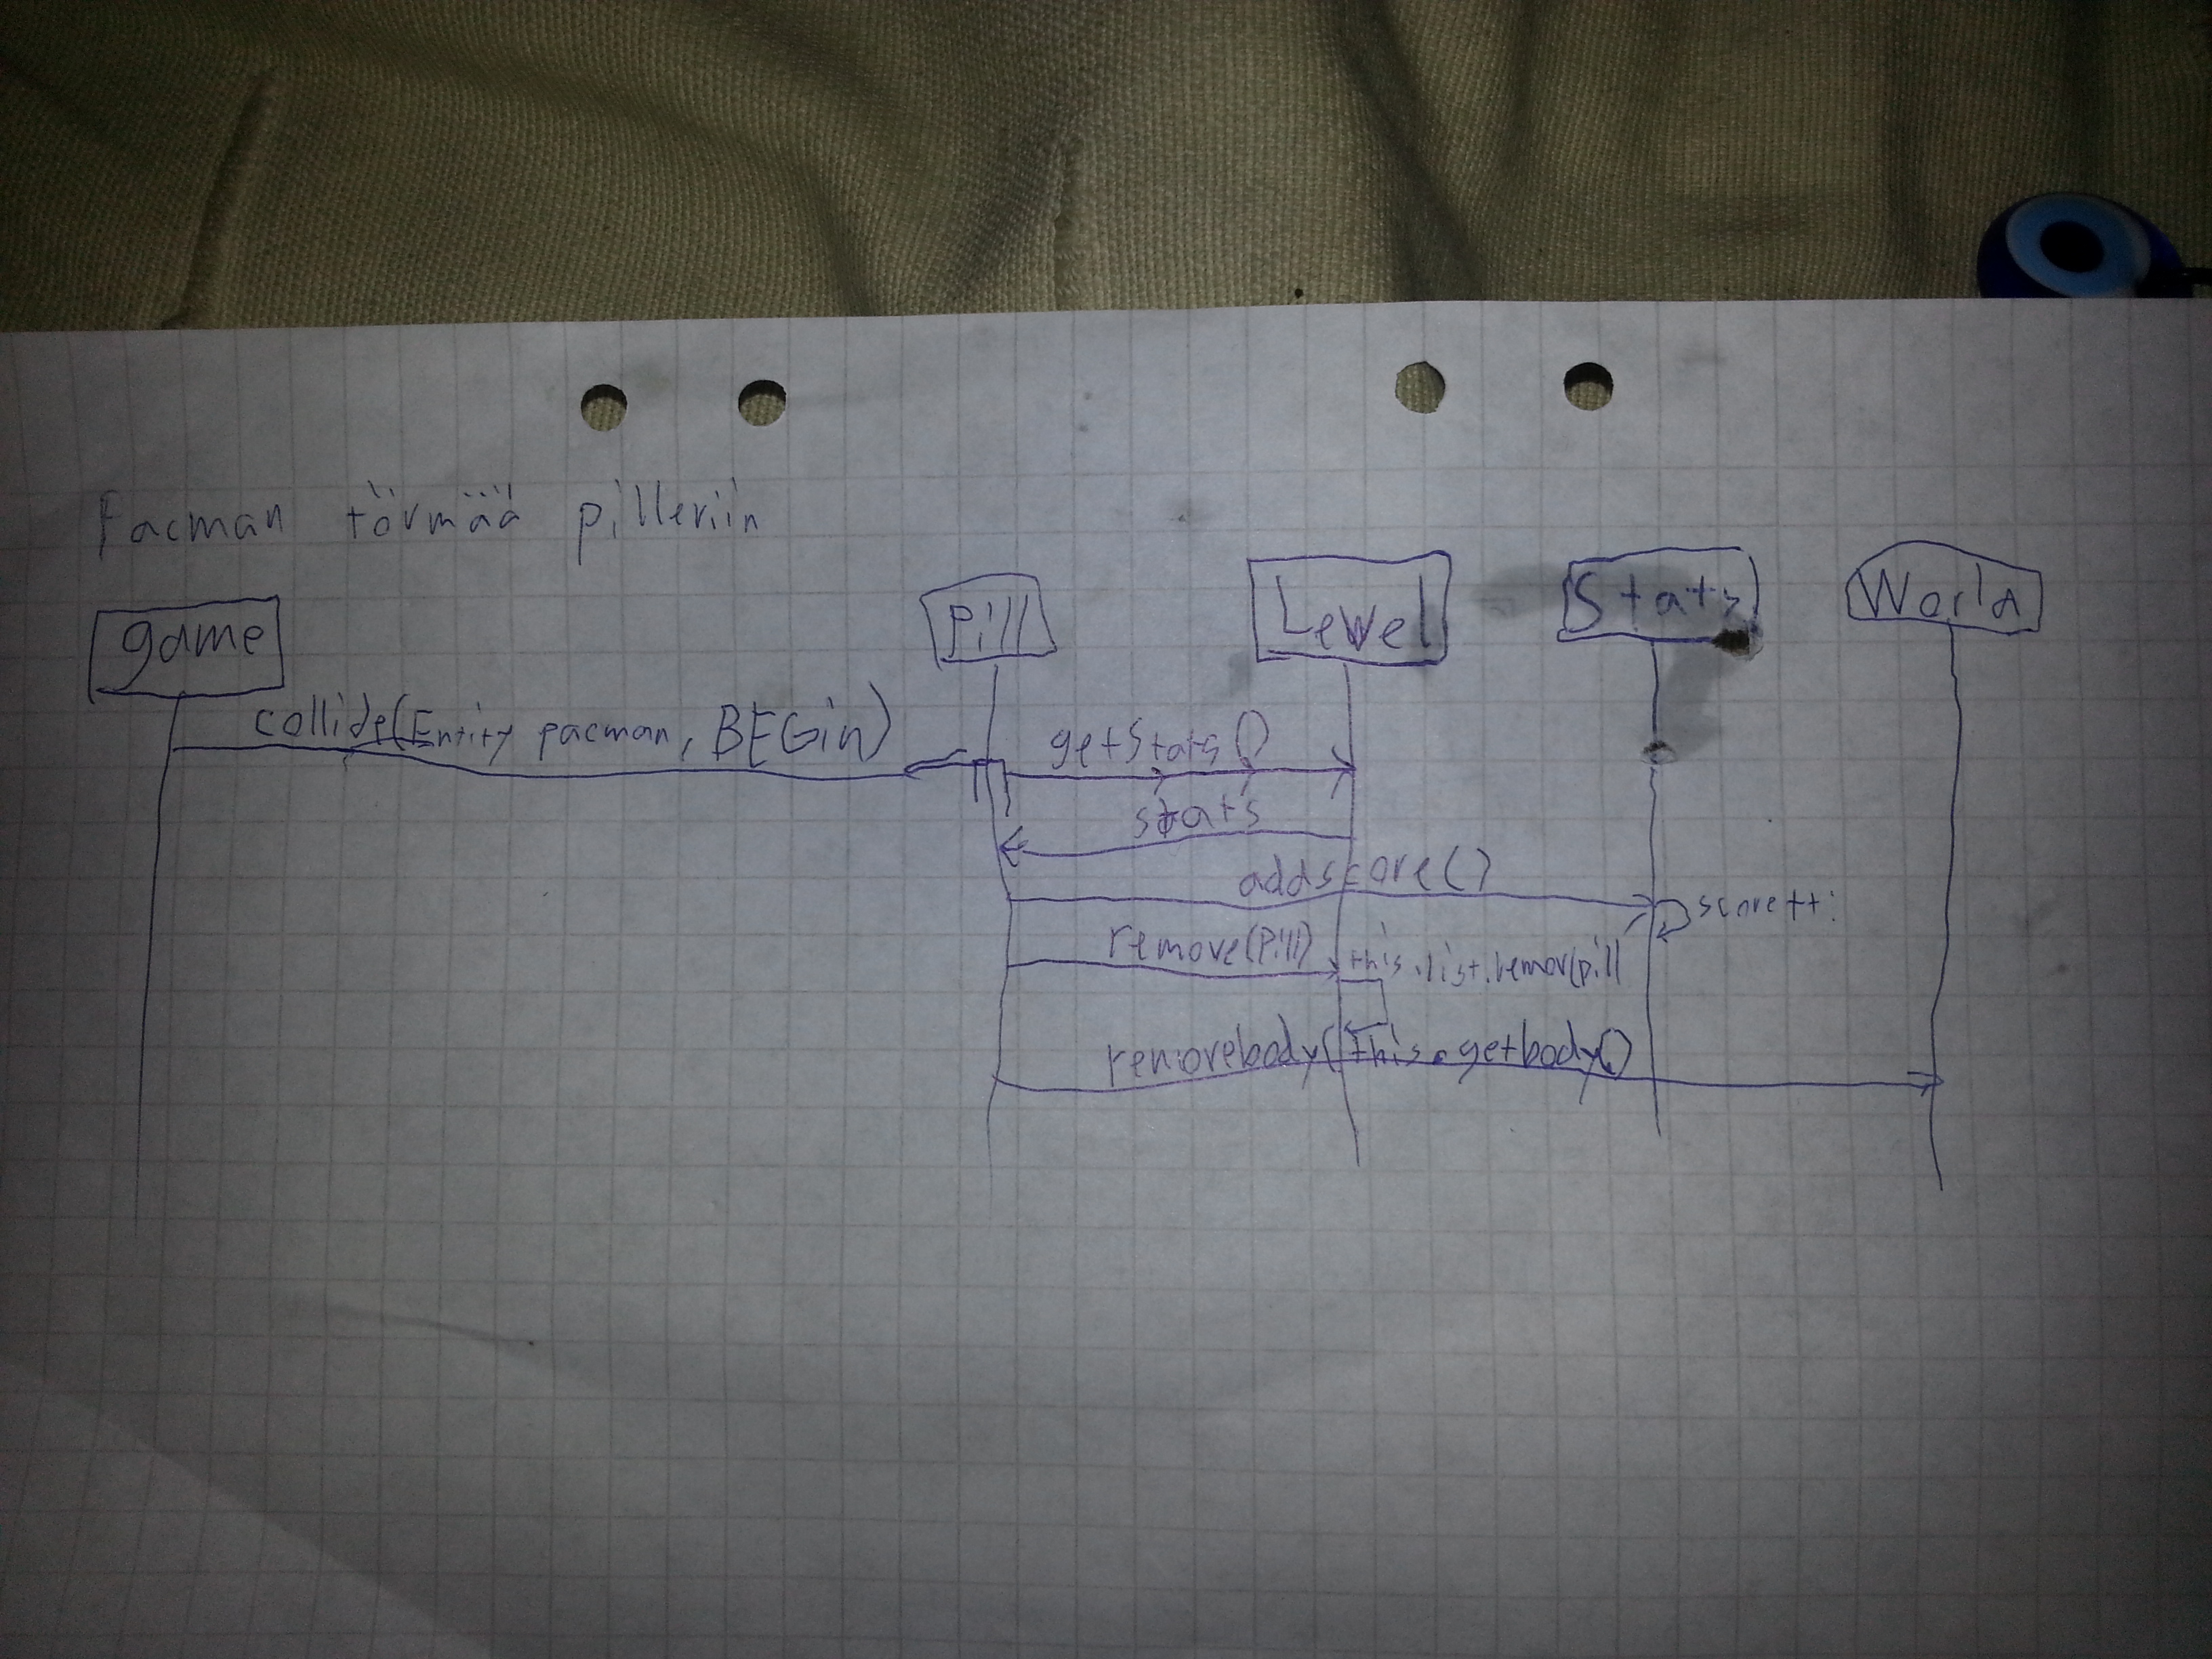 Pacman törmää pilleriin
game
Pill
Level
Stats
World
collide(Entity pacman, BEGin)
getStats()
stats
addscore()
score++;
remove(Pill)
this.list.remov(pill
removebody(this.getbody()